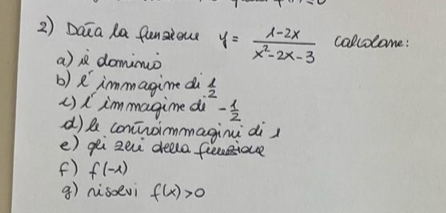 2) Data la funzione y = (1-2x)/(x²-2x-3) calcolane:
a) il dominio
b) l'immagine di 1/2
c) l'immagine di -1/2
d) le controimmagini di 1
e) gli zeri della funzione
f) f(-1)
g) risolvi f(x)>0